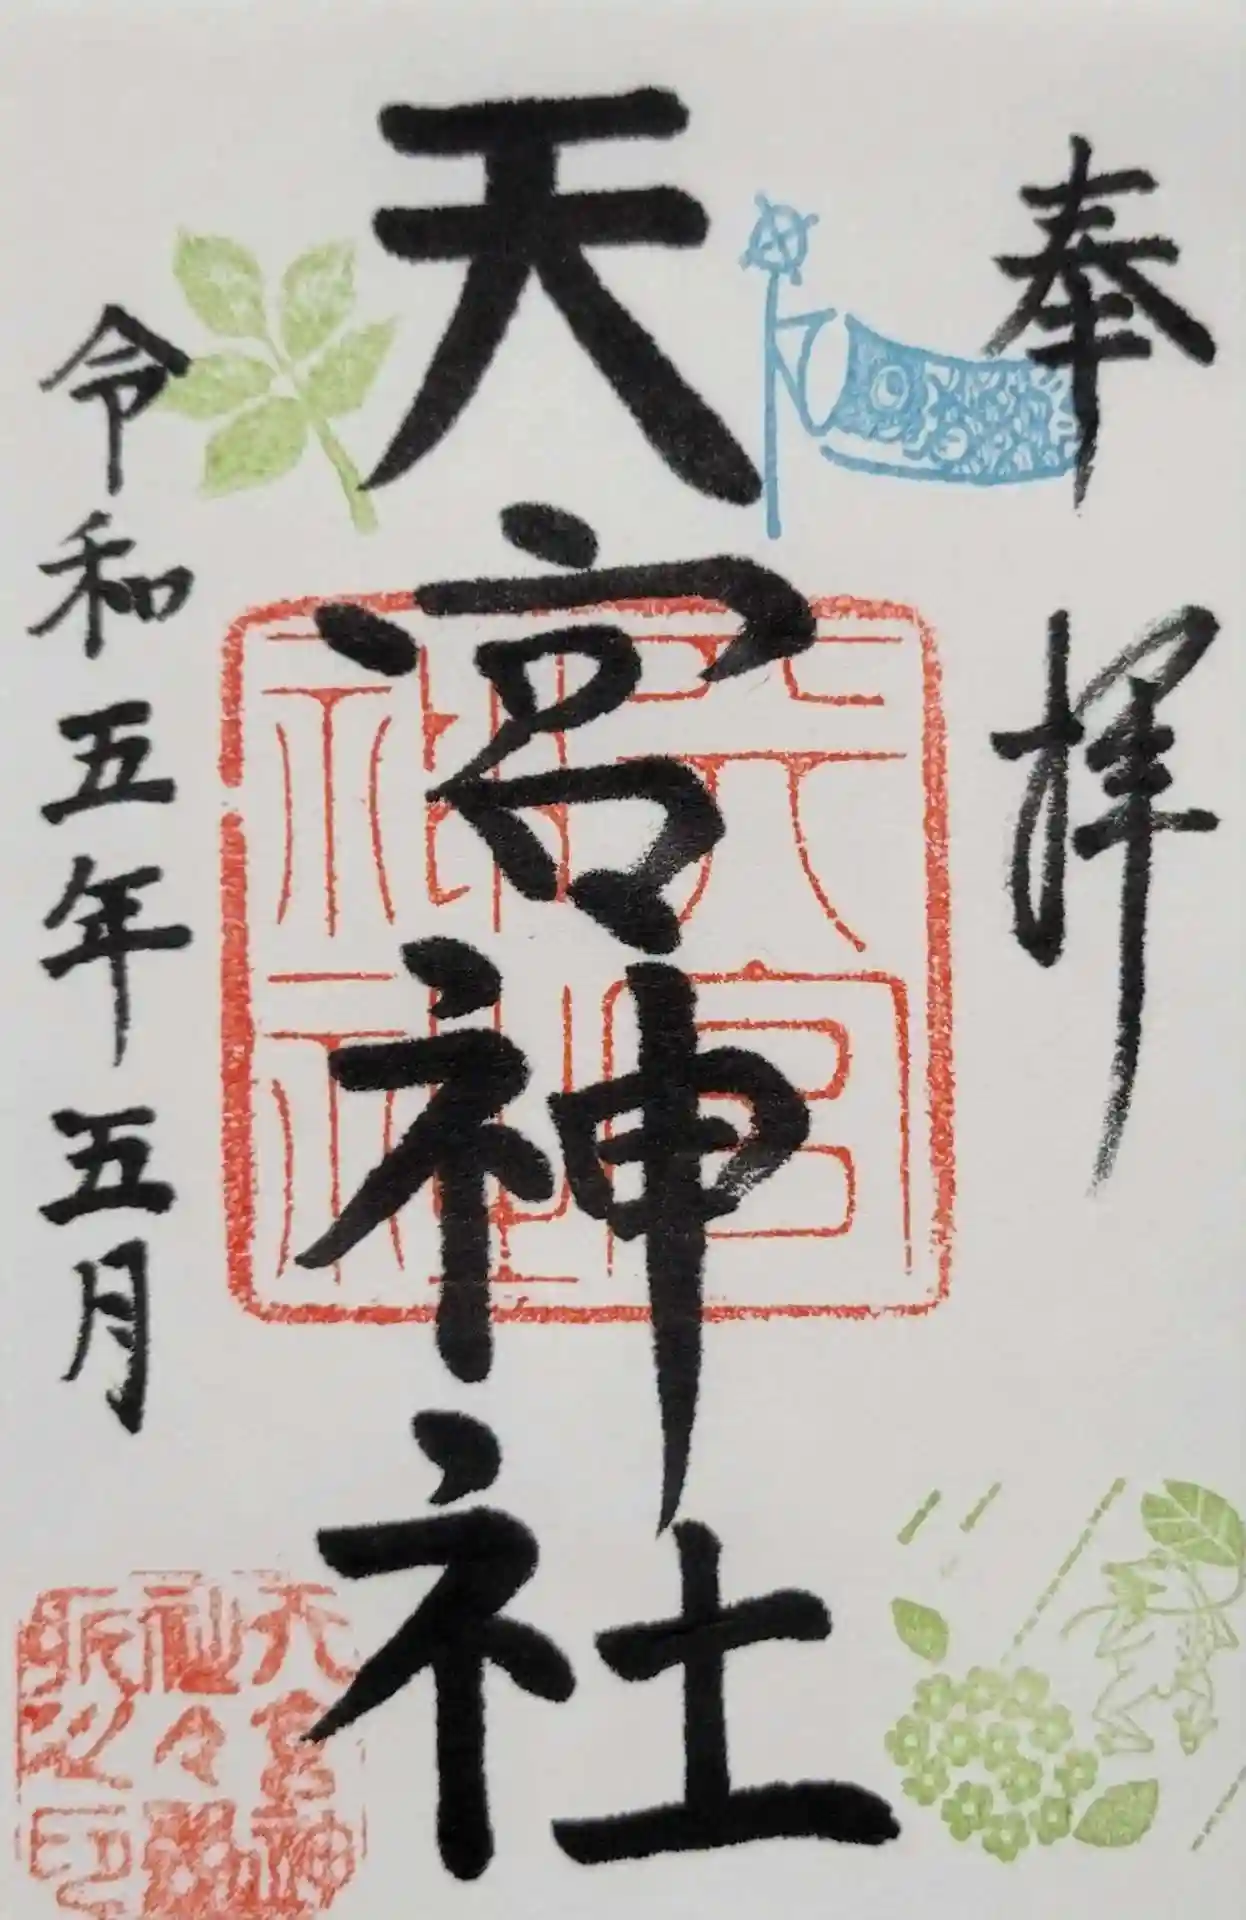 奉拝
天宮神社
天宮神社
令和五年五月
天宮神社々務所之印